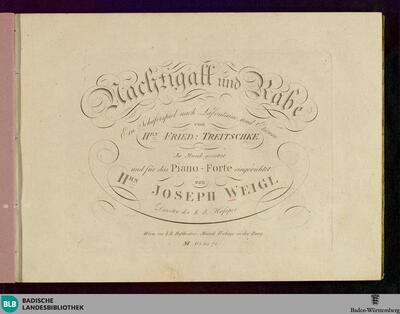 Nachtigall und Rabe
Ein Schäferspiel nach Lafontaine und Etienne
von
Hrn FRIED: TREITSCHKE
In Musik gesetzt
und für das Piano-Forte eingerichtet
von
Hrn JOSEPH WEIGL
Director der k. k. Hofoper
BLB BADISCHE
LANDESBIBLIOTHEK
Baden-Württemberg